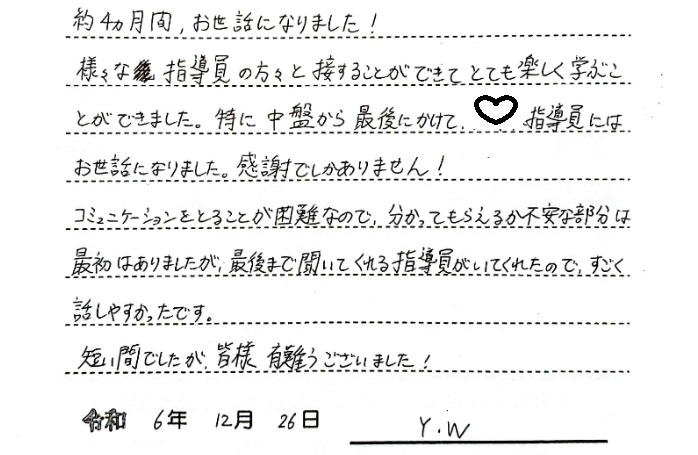 約4ヵ月間,お世話になりました!
様々な 指導員の方々と接することができてとても楽しく学ぶこ
とができました。特に中盤から最後にかけて, 指導員には
お世話になりました。感謝でしかありません!
コミュニケーションをとることが困難なので,分かってもらえるか不安な部分は
最初はありましたが,最後まで聞いてくれる指導員がいてくれたので,すごく
話しやすかったです。
短い間でしたが,皆様 有難うございました!
令和 6年 12月 26日 Y.W